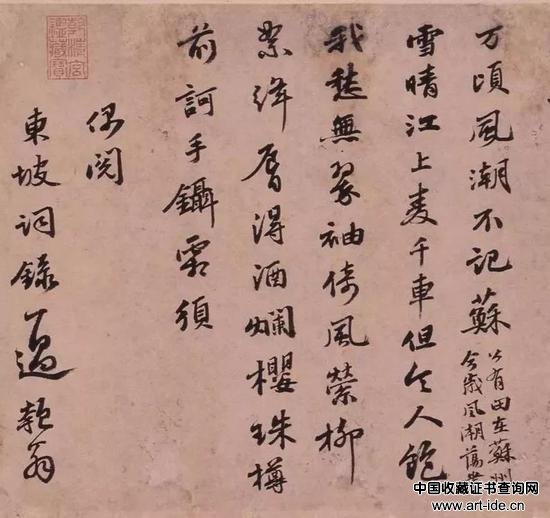 万頃風潮不記蘇
公有田在蘇州
今歲風潮蕩
雪晴江上麥千車但令人飽
我愁無翠袖倚風縈柳
絮絳唇得酒爛櫻珠樽
前訶手鑷霜須
偶閱
東坡詞錄一過匏翁
乾清宮
鑒藏寶
中国收藏证书查询网
www.art-ide.cn